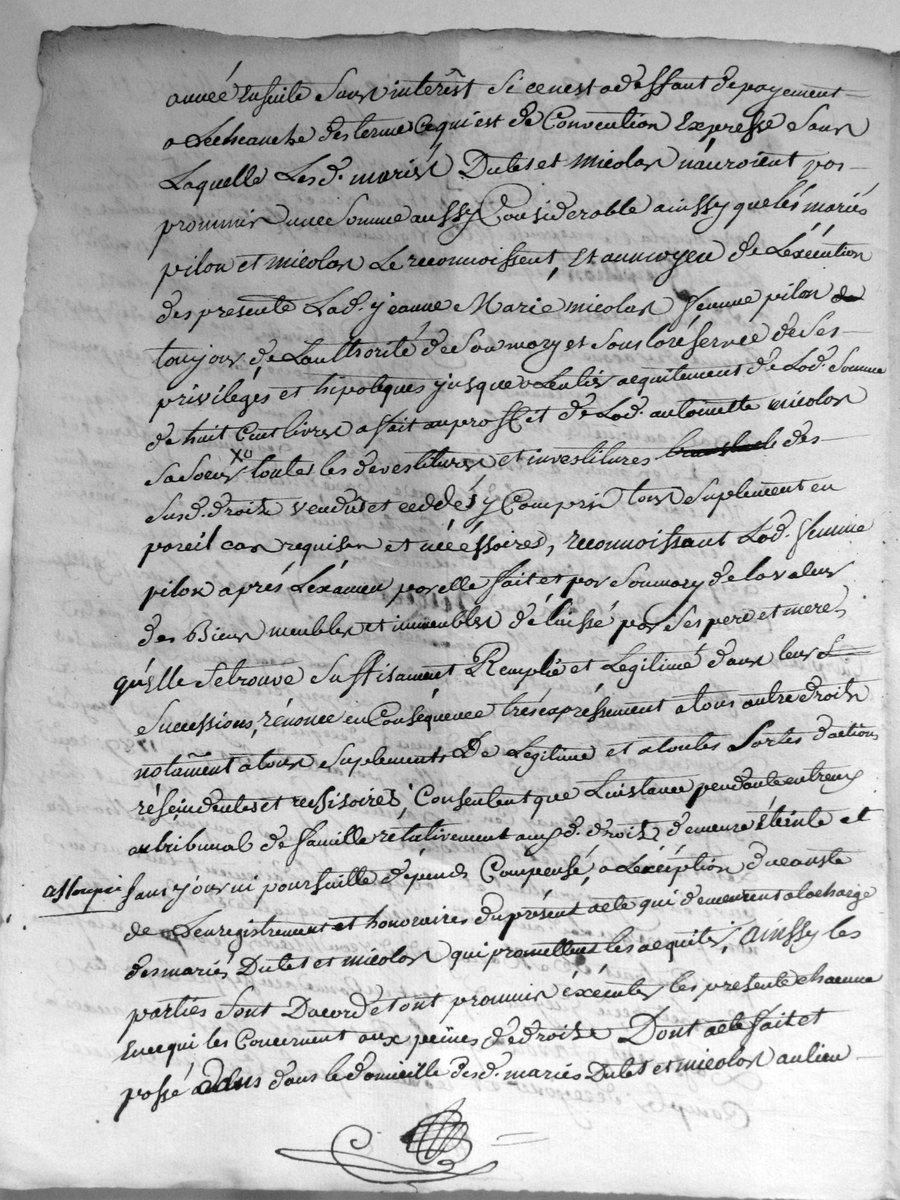 année Ensuite sans intérêt si ce nest a deffaut de payement
a Lécheanche des terme ce qui est de Convention Expresse sans
Laquelle Lesd. mariés Dutet et micolon n'auroient pas
prommis une somme aussy Considerable ainssy que les mariés
pilon et micolon Le reconnoissent, Et au moyen de Lexécution
des presente Lad. jeanne Marie micolon femme pilon
toujour de Lauthorité de son mary et sous la réserve de ses
priviléges et hipoteques jusque a Lentier acquitement de Lad. somme
de huit Cent livres a fait au profit de Lad. antoinette micolon
sa soeur toutes les devestitures et investitures des
susd. droits vendus et ceddés y Compris tous suplement en
pareil cas requises et nécéssoires, reconnoissant Lad. femme
pilon aprés L'éxamen par elle fait et par son mary de la valeur
des Biens meubles et immeubles délaissé par ses pere et mere
qu'Elle se trouve suffisament Remplie et Légitimé dans leurs
successions, rénonce en Conséquence trés expréssement a tous autre droits
notament a tous suplements De Légitime et a toutes sortes d'actions
réscindentes et réssisoires, Consentent que Linstance pendante entreux
au tribunal de famille rélativement auxd. droits demeure éteinte et
assoupie sans y jour ni poursuitte dépends Compensé, a Léxéption du couste
de Lenregistrement et honoraires du présent acte qui demeurent a la charge
des mariés Dutet et micolon qui promettent les acquiter, ainssy les
parties sont Dacord et ont prommis éxécuter les presente chacune
En ce qui les Concernent aux peines de droits Dont acte fait et
passé dans le domicille desd. mariés Dutet et micolon au lieu